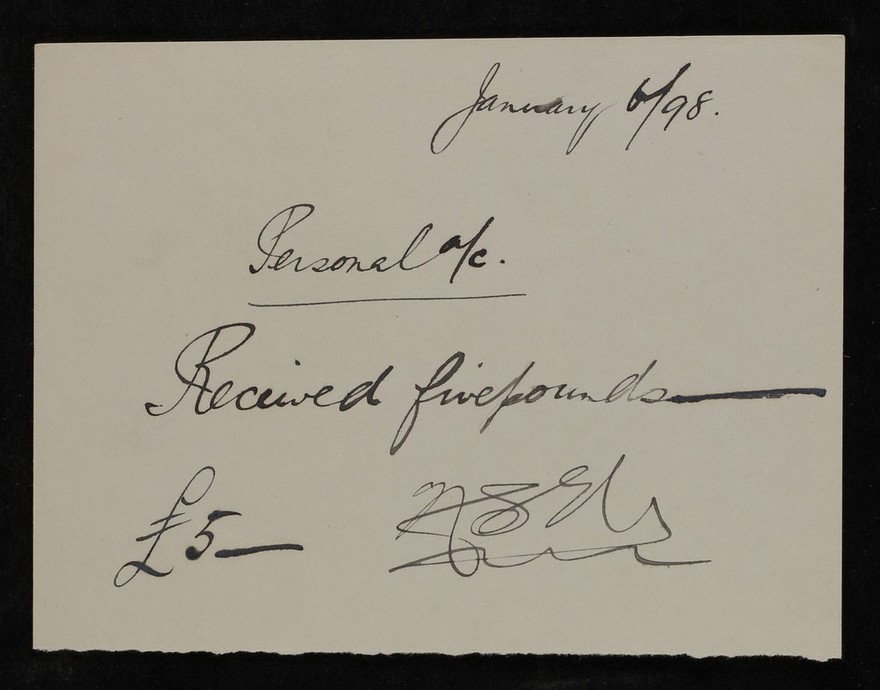 January 6/98.
Personal a/c.
Received five pounds
£5